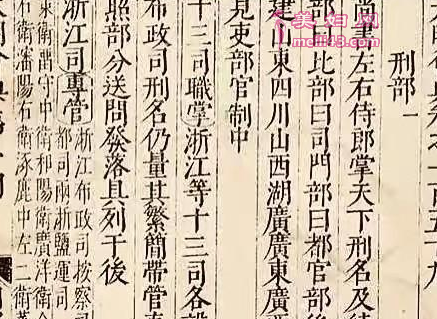 刑部一
尚書左右侍郎掌天下刑名及
部曰比部曰司門部曰都官部後
建山東四川山西湖廣廣東廣西
見吏部官制中
十三司職掌浙江等十三司各設
布政司刑名仍量其繁簡帶管直
照部分送問發落具列于後
浙江司專管
浙江布政司按察司
都司兩浙鹽運司
衛留守中衛和陽衛廣洋衛
右衛瀋陽右衛涿鹿中左二衛
美妇网